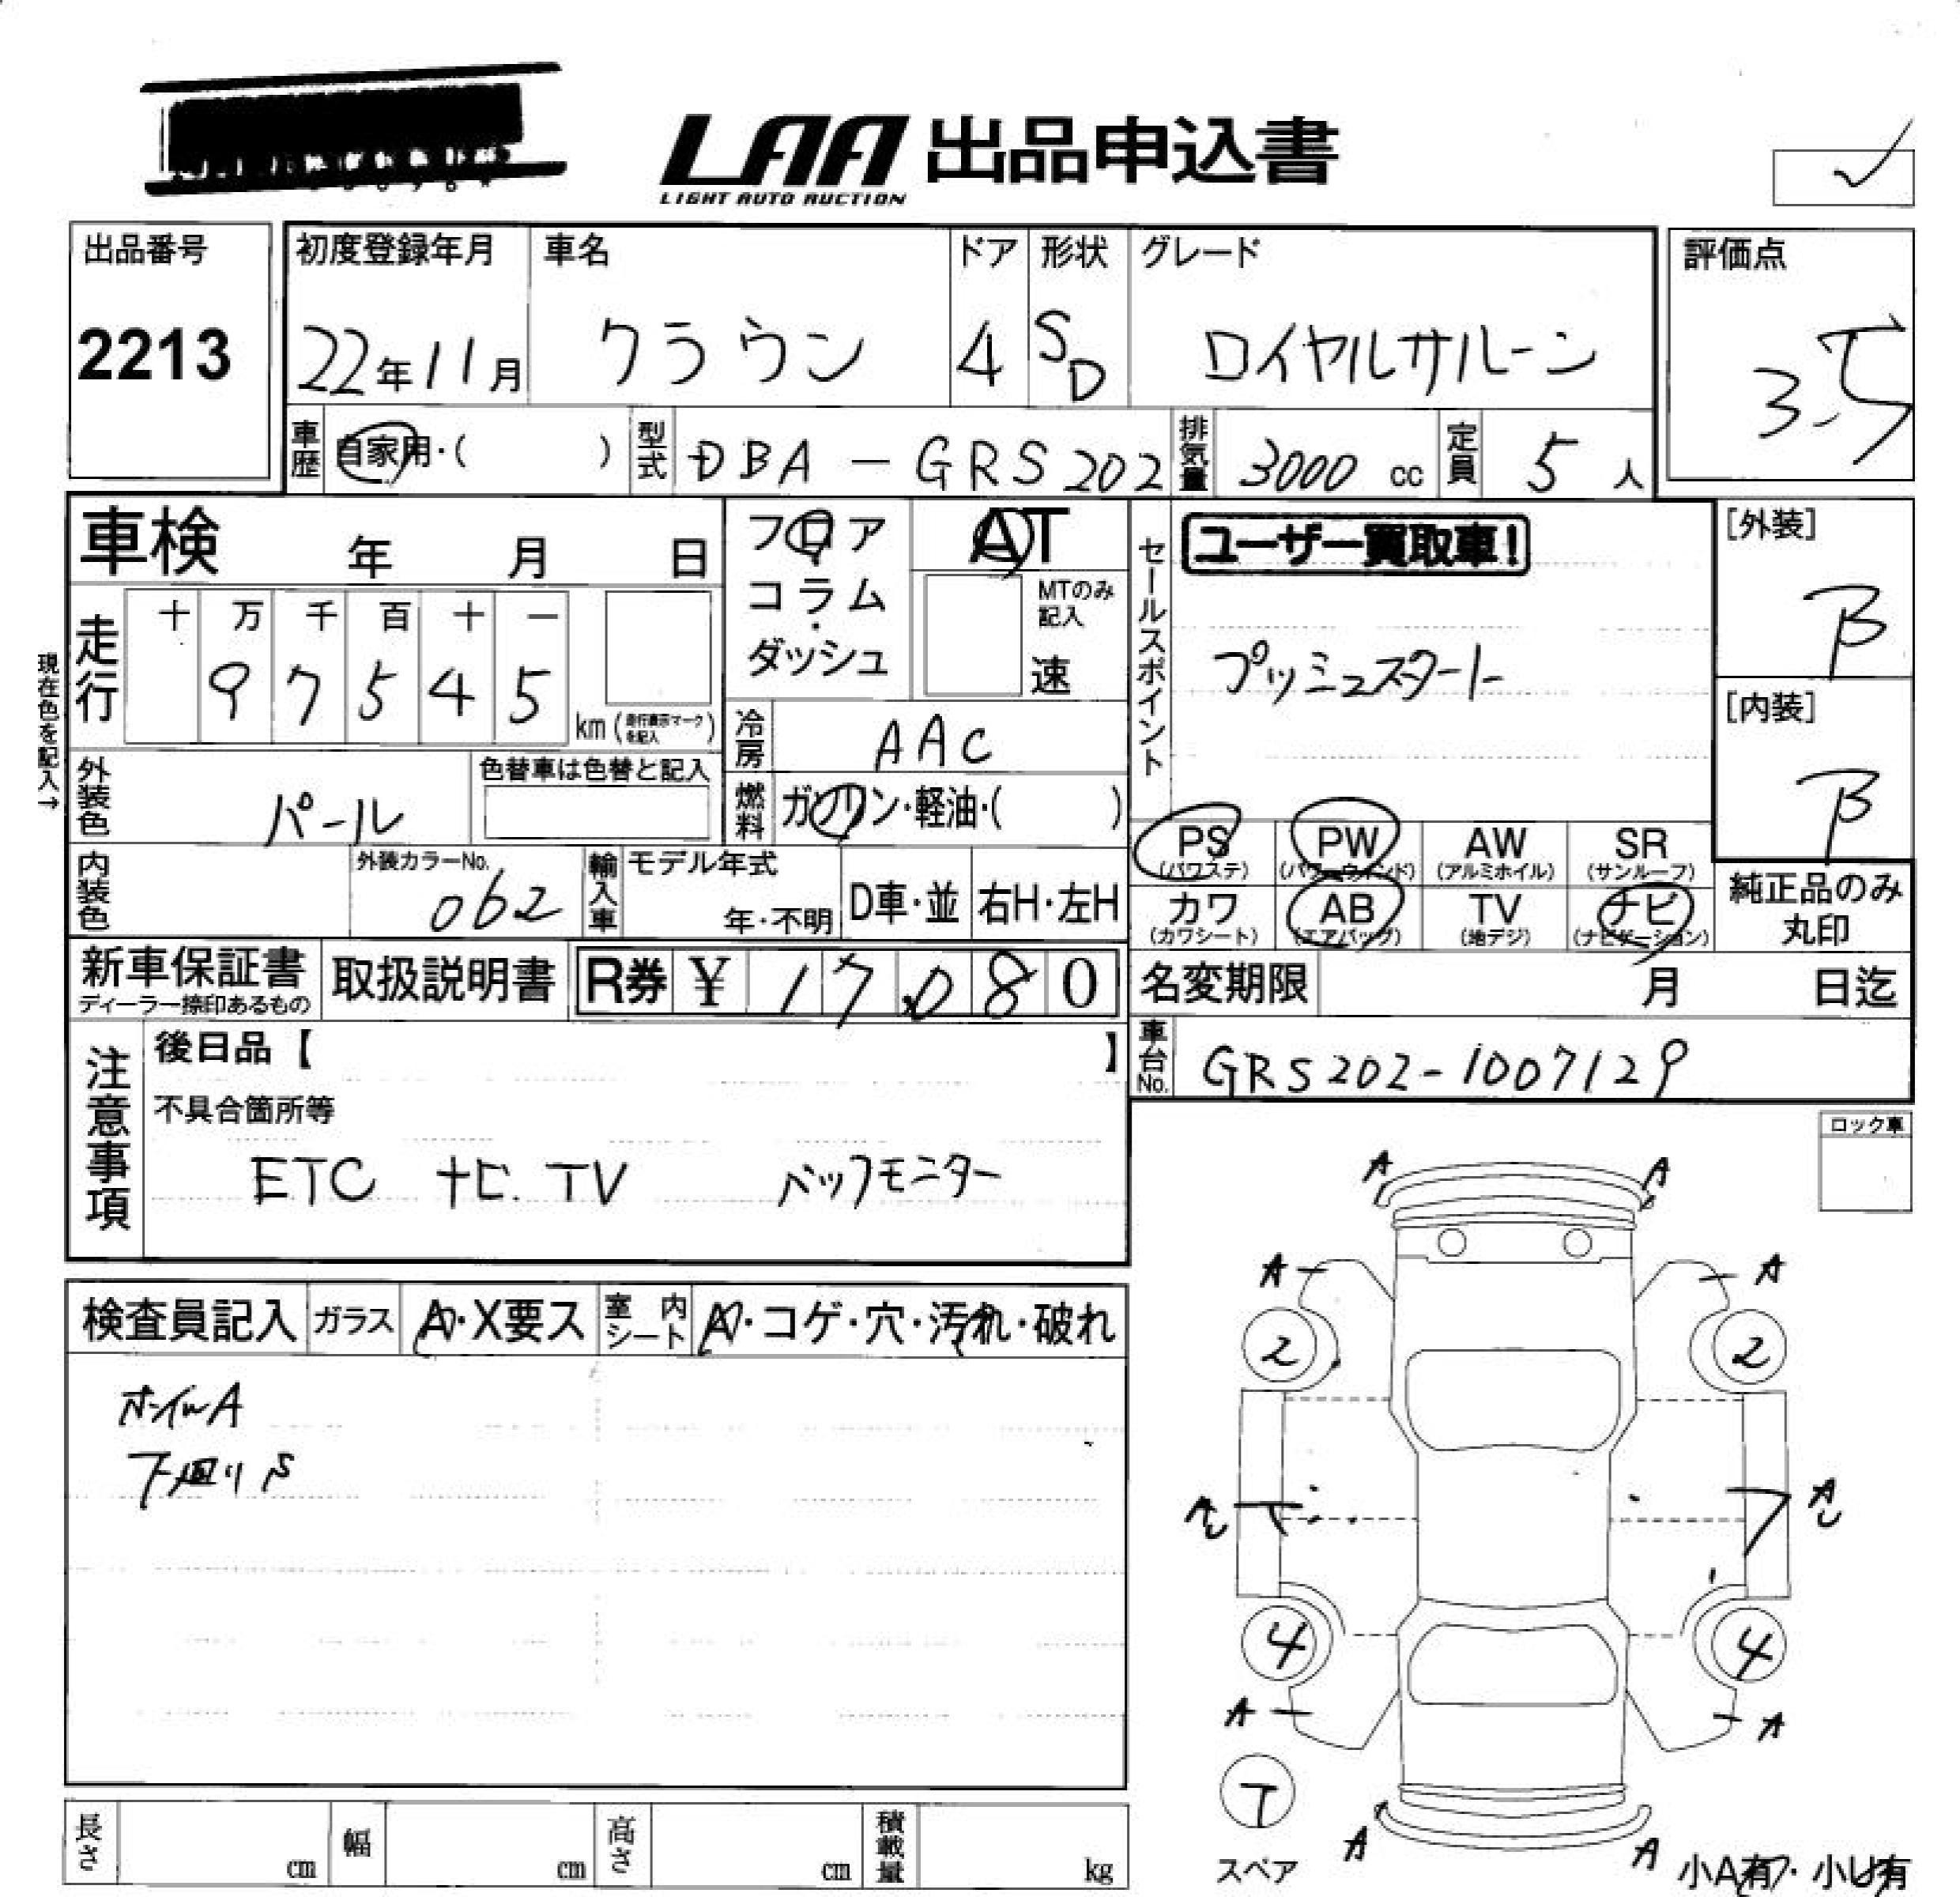 LAA 出品申込書
LIGHT AUTO AUCTION
出品番号
2213
初度登録年月
22年11月
車名
クラウン
ドア
4
形状
SD
グレード
ロイヤルサルーン
評価点
3.5
車歴
自家用・( )
型式
DBA-GRS202
排気量
3000 cc
定員
5人
車検 年 月 日
フロア
コラム
・
ダッシュ
AT
MTのみ
記入
速
セールスポイント
ユーザー買取車!
プッシュスタート
[外装]
B
[内装]
B
現在色を記入→
走行
十 万 千 百 十 一
9 7 5 4 5
km (走行表示マークを記入)
冷房
AAC
外装色
パール
色替車は色替と記入
燃料
ガソリン・軽油・( )
内装色
外装カラーNo.
062
輸入車
モデル年式
年・不明
D車・並
右H・左H
PS
(パワステ)
PW
(パワーウインド)
AW
(アルミホイル)
SR
(サンルーフ)
カワ
(カワシート)
AB
(エアバッグ)
TV
(地デジ)
ナビ
(ナビゲーション)
純正品のみ
丸印
新車保証書
ディーラー捺印あるもの
取扱説明書
R券 ¥ 17,080
名変期限 月 日迄
注意事項
後日品【 】
不具合箇所等
ETC ナビ.TV バックモニター
車台No.
GRS202-1007129
ロック車
検査員記入
ガラス
A・X要ス
室内シート
A・コゲ・穴・汚れ・破れ
ホイルA
下廻りS
A A
A A
2 2
A A
4 4
A A
T
スペア
A A
小A有・小U有
長さ cm
幅 cm
高さ cm
積載量 kg